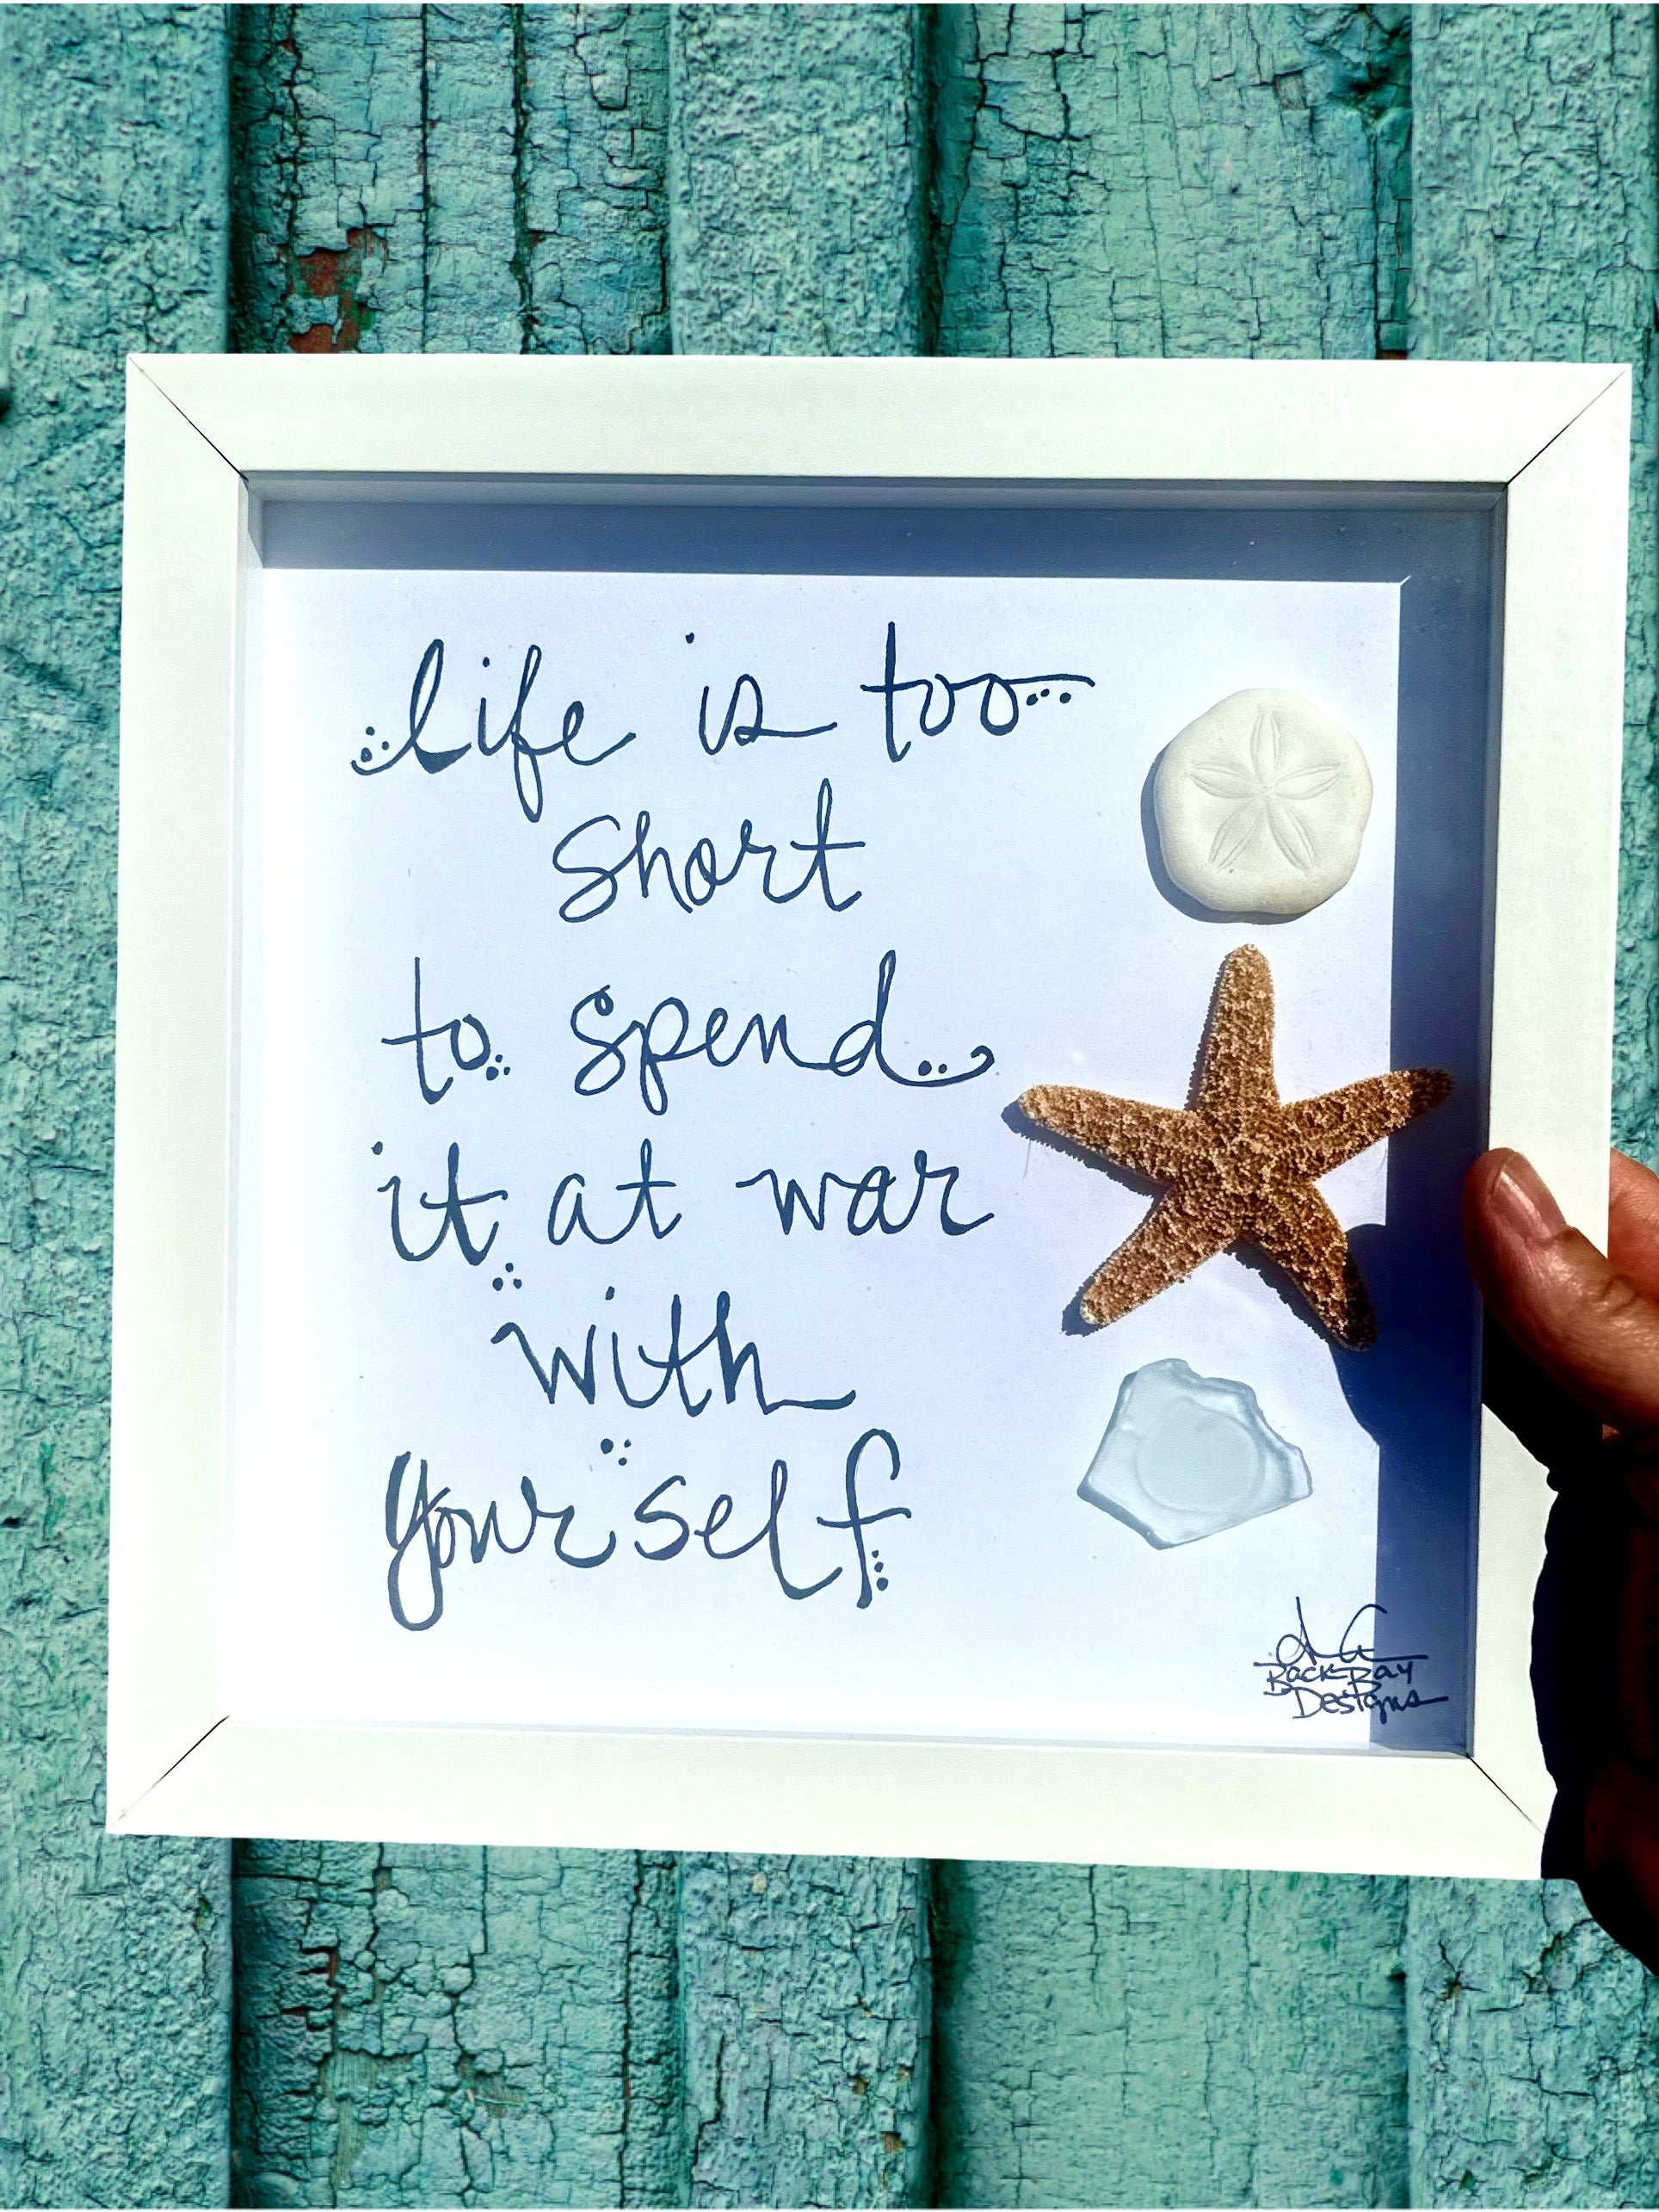 life is too
short
to spend
it at war
with
yourself
AG
Back Bay
Designs